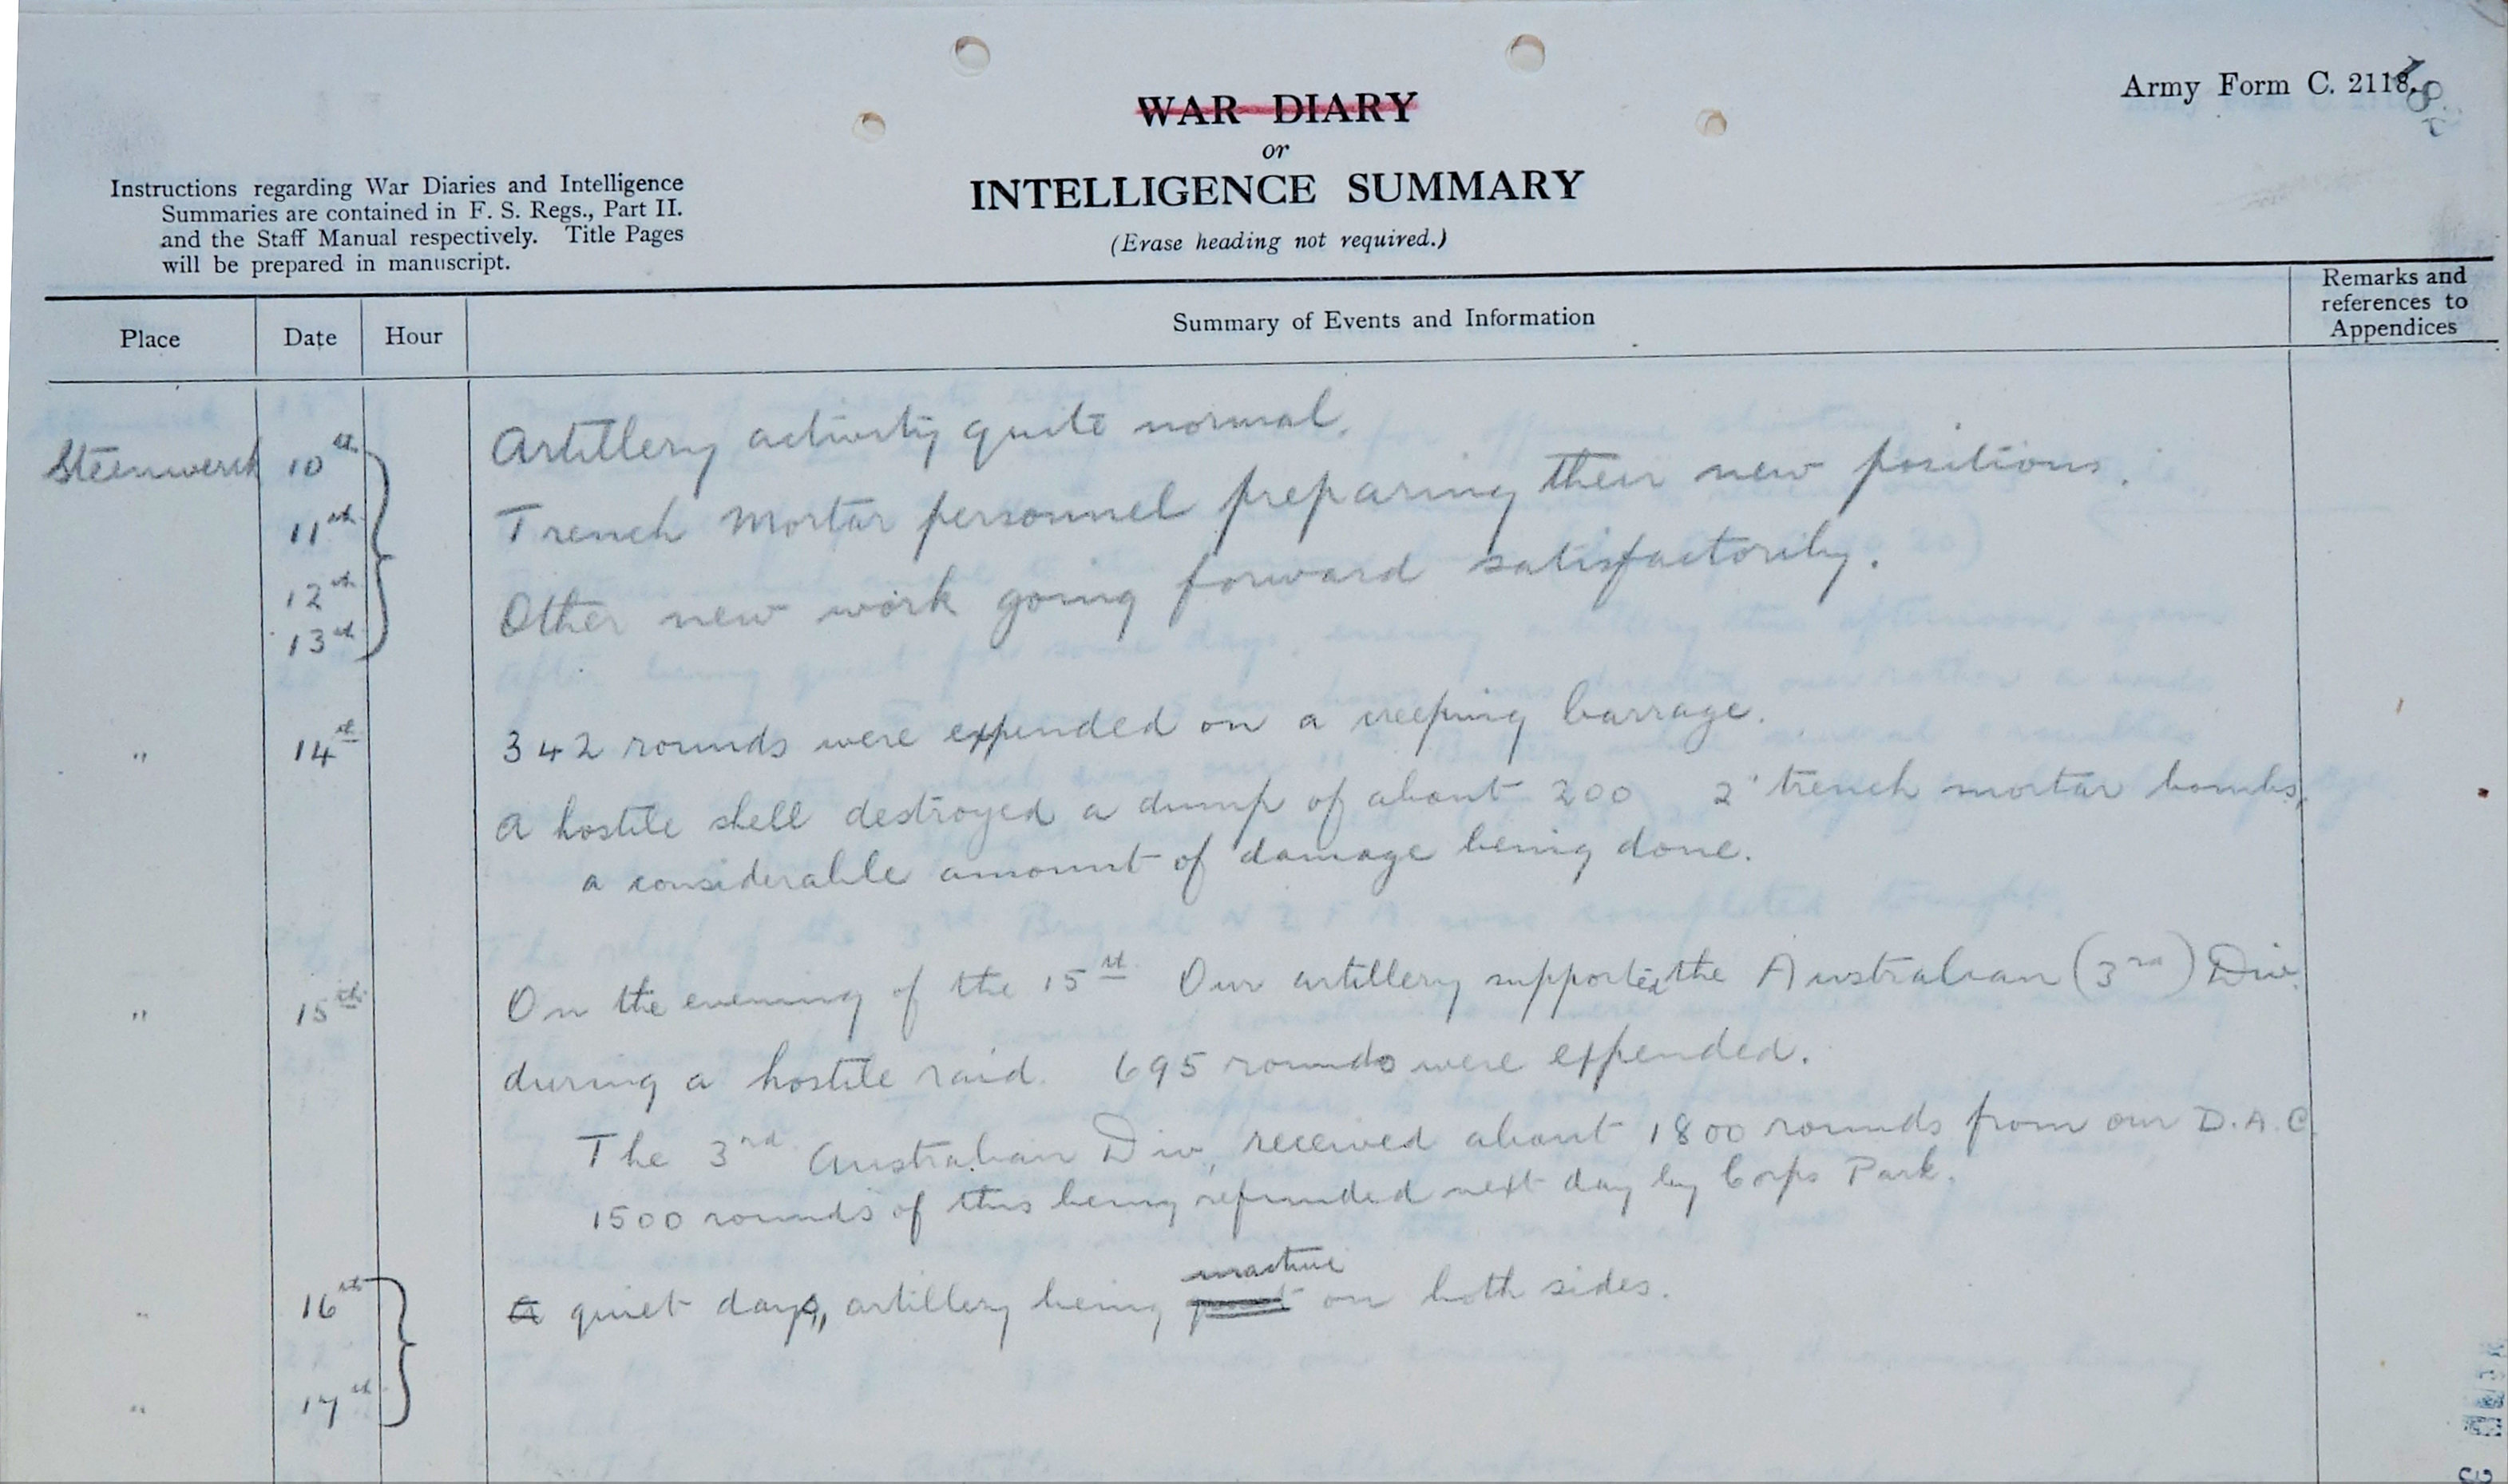 Army Form C. 2118.
WAR DIARY
or
INTELLIGENCE SUMMARY
(Erase heading not required.)
Instructions regarding War Diaries and Intelligence
Summaries are contained in F. S. Regs., Part II.
and the Staff Manual respectively. Title Pages
will be prepared in manuscript.
Place Date Hour Summary of Events and Information Remarks and references to Appendices
Steenwerck 10th Artillery activity quite normal.
11th Trench Mortar personnel preparing their new positions.
12th Other new work going forward satisfactorily.
13th
" 14th 342 rounds were expended on a creeping barrage.
A hostile shell destroyed a dump of about 200 2" trench mortar bombs,
a considerable amount of damage being done.
" 15th On the evening of the 15th Our artillery supported the Australian (3rd) Div.
during a hostile raid. 695 rounds were expended.
The 3rd Australian Div, received about 1800 rounds from our D.A.C.
1500 rounds of this being refunded next day by Corps Park.
inactive
" 16th A quiet days, artillery being quiet on both sides.
" 17th